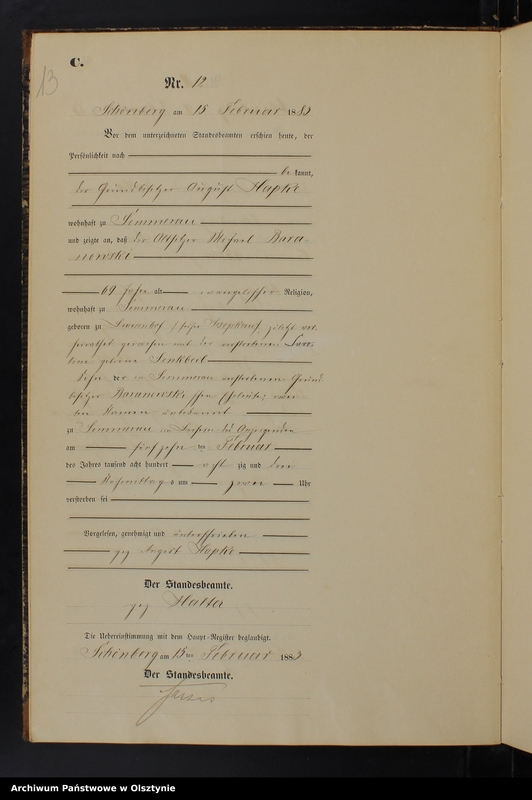 C.
13
Nr. 12
Schönberg am 15 Februar 1883
Vor dem unterzeichneten Standesbeamten erschien heute, der
Persönlichkeit nach
be kannt,
der Grundbesitzer August Hapke
wohnhaft zu Sommerau
und zeigte an, daß der Altsitzer Michael Bara-
nowski
69 Jahre alt evangelischer Religion,
wohnhaft zu Sommerau
geboren zu zuletzt ver-
heirathet gewesen mit der verstorbenen
geborne
Sohn der in Sommerau verstorbenen Grund-
besitzer Baranowski'schen Eheleute, deren
Namen unbekannt
zu Sommerau in des Anzeigenden
am fünfzehn ten Februar
des Jahres tausend acht hundert acht zig und drei
Nachmittags um zwei Uhr
verstorben sei
Vorgelesen, genehmigt und unterschrieben
gez August Hapke
Der Standesbeamte.
gez
Die Uebereinstimmung mit dem Haupt-Register beglaubigt.
Schönberg am 15 ten Februar 1883
Der Standesbeamte.
Archiwum Państwowe w Olsztynie